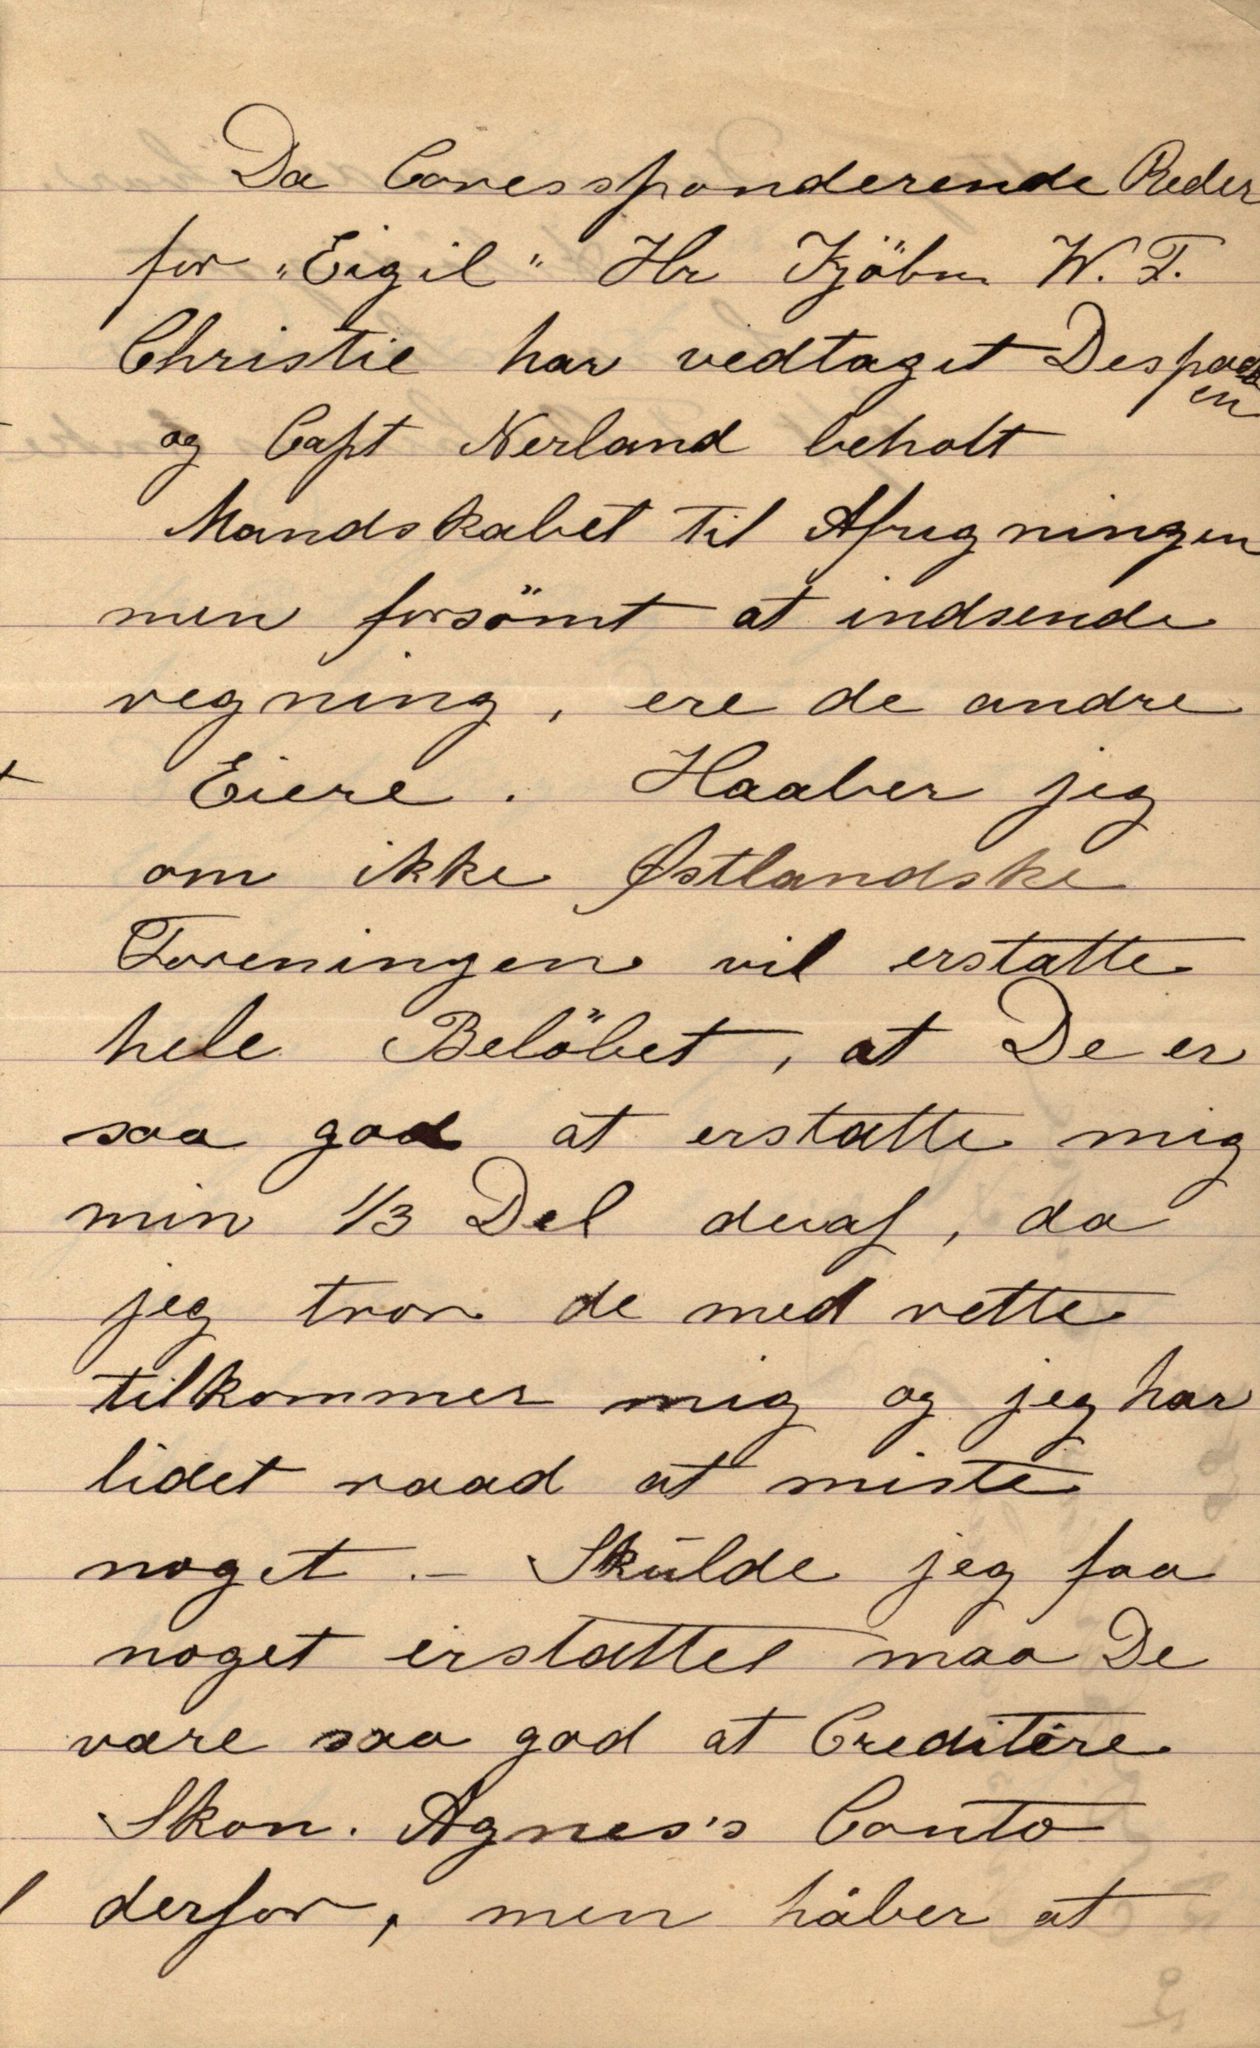 Da Coresponderende Reder
for „Eigil" Hr Kjöbm W. F.
Christie har vedtaget Despachen
og Capt Nerland beholt
Mandskabet til Afrigningen
men forsömt at indsende
regning, ere de andre
Eiere. Haaber jeg
om ikke Østlandske
Foreningen vil erstatte
hele Belöbet, at De er
saa god at erstatte mig
min 1/3 Del deraf, da
jeg tror de med rette
tilkommer mig og jeg har
lidet raad at miste
noget. – Skulde jeg faa
noget erstattet maa De
være saa god at Creditere
Skon. Agnes's Conto
derfor, men håber at